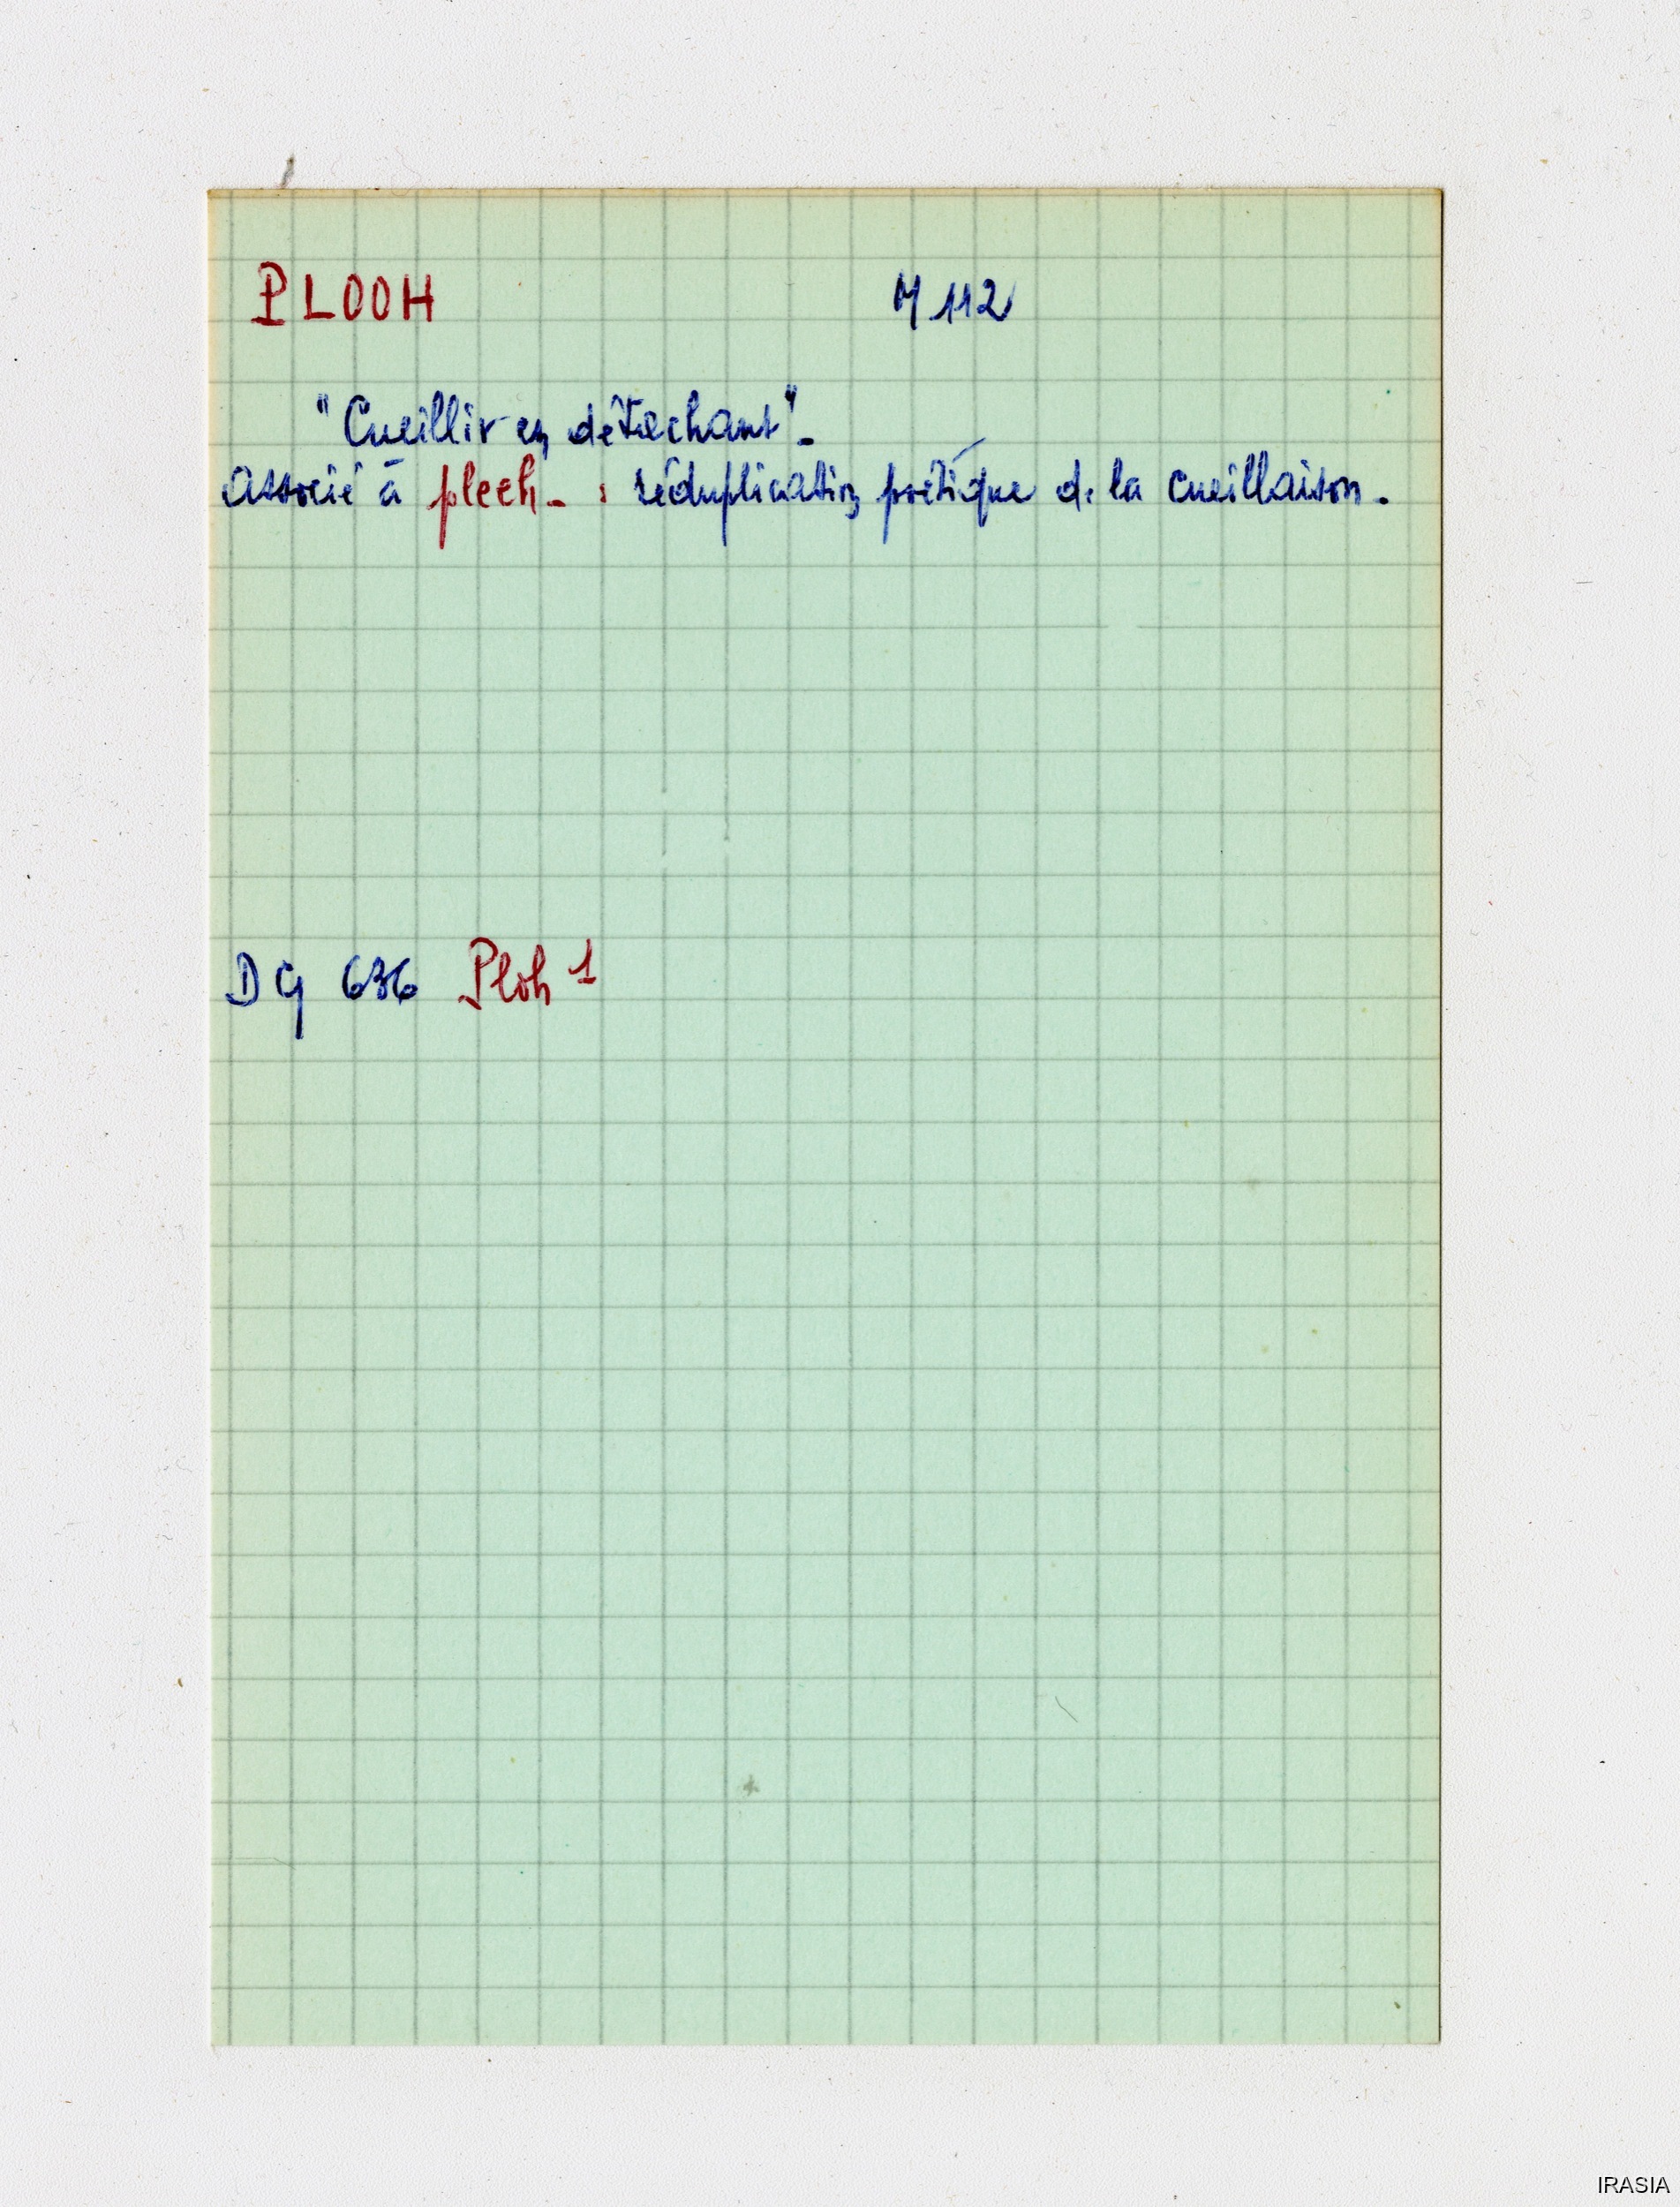 PLOOH M 112
"Cueillir en détachant".
Associé à plech. : réduplication poétique de la cueillaison.
DG 636 Ploh 1
IRASIA